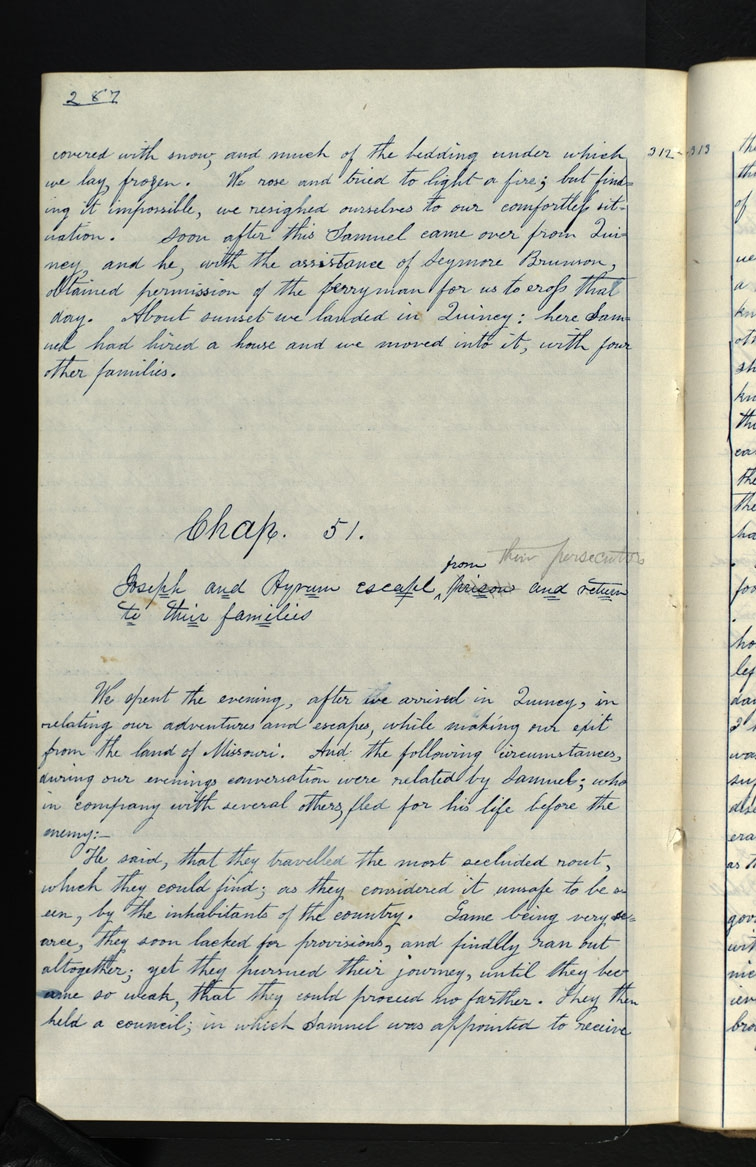 287
covered with snow, and much of the bedding under which 312-313
we lay, frozen. We rose and tried to light a fire; but find=
ing it impossible, we resigned ourselves to our comfortless sit-
uation. Soon after this Samuel came over from Quin-
ncy, and he, with the assistance of Seymore Brunson,
obtained permission of the ferryman for us to cross that
day. About sunset we landed in Quincy: here Sam=
uel had hired a house and we moved into it, with four
other families.
Chap. 51.
from their persecutors
Joseph and Hyrum escape, ^ prison and return
to their families
We spent the evening, after we arrived in Quincy, in
relating our adventures and escapes, while making our exit
from the land of Missouri. And the following circumstances,
during our evenings conversation were related by Samuel; who
in company with several others, fled for his life before the
enemy:—
He said, that they travelled the most secluded rout,
which they could find; as they considered it unsafe to be s-
een, by the inhabitants of the country. Game being very sc=
arce, they soon lacked for provisions, and finally ran out
altogether; yet they pursued their journey, until they bec
ame so weak, that they could proceed no farther. They then
held a council; in which Samuel was appointed to receive